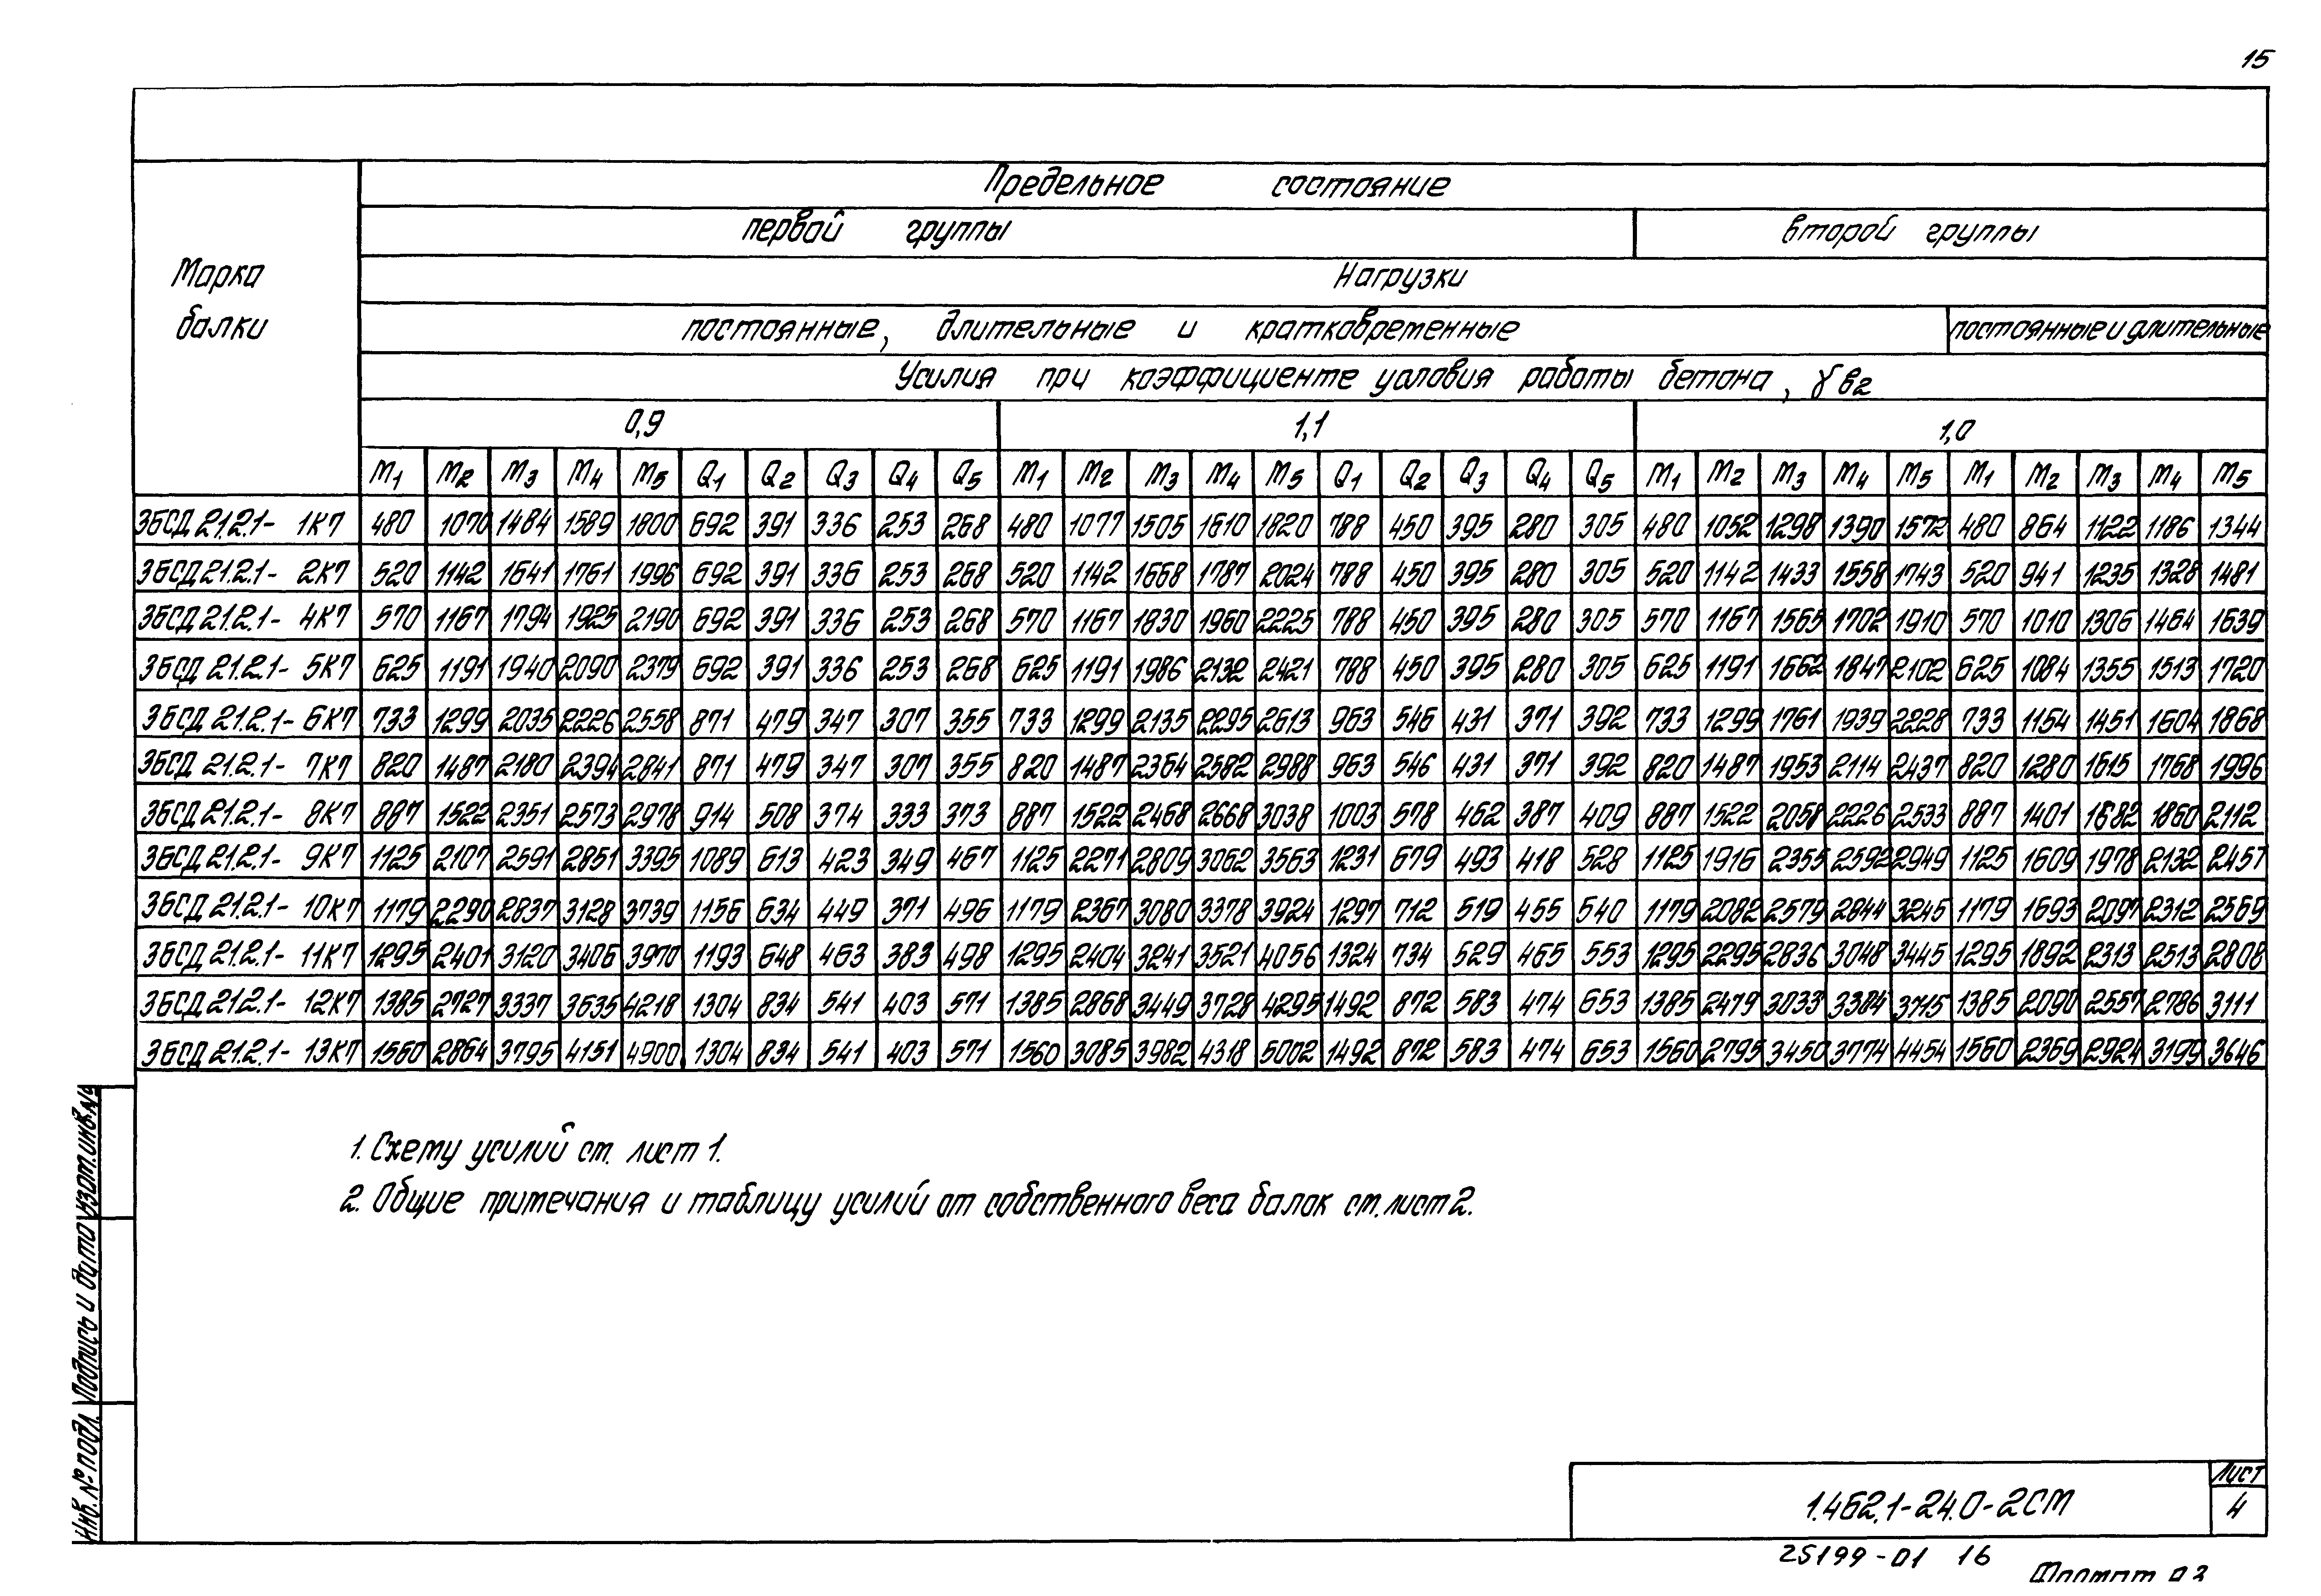 15
Предельное состояние
первой группы второй группы
Марка балки
Нагрузки
постоянные, длительные и кратковременные постоянные и длительные
Усилия при коэффициенте условия работы бетона, γв2
0,9 1,1 1,0
M1 M2 M3 M4 M5 Q1 Q2 Q3 Q4 Q5 M1 M2 M3 M4 M5 Q1 Q2 Q3 Q4 Q5 M1 M2 M3 M4 M5 M1 M2 M3 M4 M5
3БСД 21.2.1- 1К7 480 1070 1484 1589 1800 692 391 336 253 268 480 1077 1505 1610 1820 788 450 395 280 305 480 1052 1298 1390 1572 480 864 1122 1186 1344
3БСД 21.2.1- 2К7 520 1142 1641 1761 1996 692 391 336 253 268 520 1142 1668 1787 2024 788 450 395 280 305 520 1142 1433 1558 1743 520 941 1235 1328 1481
3БСД 21.2.1- 4К7 570 1167 1794 1925 2190 692 391 336 253 268 570 1167 1830 1960 2225 788 450 395 280 305 570 1167 1565 1702 1910 570 1010 1306 1464 1639
3БСД 21.2.1- 5К7 625 1191 1940 2090 2379 692 391 336 253 268 625 1191 1986 2132 2421 788 450 395 280 305 625 1191 1662 1847 2102 625 1084 1355 1513 1720
3БСД 21.2.1- 6К7 733 1299 2035 2226 2558 871 479 347 307 355 733 1299 2135 2295 2613 963 546 431 371 392 733 1299 1761 1939 2228 733 1154 1451 1604 1868
3БСД 21.2.1- 7К7 820 1487 2180 2394 2841 871 479 347 307 355 820 1487 2364 2582 2988 963 546 431 371 392 820 1487 1953 2114 2437 820 1280 1615 1768 1996
3БСД 21.2.1- 8К7 887 1522 2351 2573 2978 914 508 374 333 373 887 1522 2468 2668 3038 1003 578 462 387 409 887 1522 2058 2226 2533 887 1401 1682 1860 2112
3БСД 21.2.1- 9К7 1125 2107 2591 2851 3395 1089 613 423 349 467 1125 2271 2809 3062 3563 1231 679 493 418 528 1125 1916 2355 2592 2949 1125 1609 1978 2132 2457
3БСД 21.2.1- 10К7 1179 2290 2837 3128 3739 1156 634 449 371 496 1179 2367 3080 3378 3924 1297 712 519 455 540 1179 2082 2579 2844 3245 1179 1693 2097 2312 2569
3БСД 21.2.1- 11К7 1295 2401 3120 3406 3970 1193 648 463 383 498 1295 2404 3241 3521 4056 1324 734 529 465 553 1295 2295 2836 3048 3445 1295 1892 2313 2513 2808
3БСД 21.2.1- 12К7 1385 2727 3337 3635 4218 1304 834 541 403 571 1385 2868 3449 3728 4295 1492 872 583 474 653 1385 2479 3033 3384 3715 1385 2090 2557 2786 3111
3БСД 21.2.1- 13К7 1560 2864 3795 4151 4900 1304 834 541 403 571 1560 3085 3982 4318 5002 1492 872 583 474 653 1560 2795 3450 3774 4454 1560 2369 2924 3199 3646
1. Схему усилий см. лист 1.
2. Общие примечания и таблицу усилий от собственного веса балок см. лист 2.
Инв. № подл. Подпись и дата Взам. инв. №
1.462.1-24.0-2СМ
Лист
4
25199-01 16
Формат А3